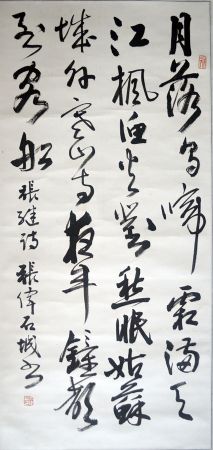 月落烏啼霜滿天
江楓漁火對愁眠姑蘇
城外寒山寺夜半鐘聲
到客船 張繼詩 張偉石城书